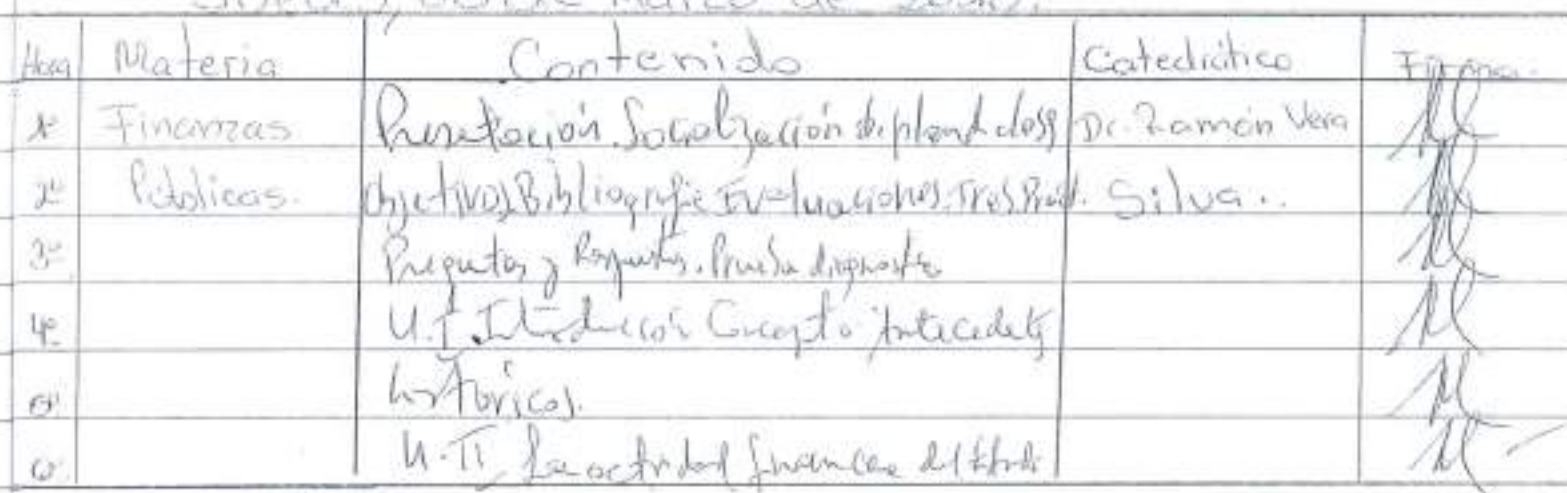 Marzo de
Hora Materia Contenido Catedrático Firma.
1º Finanzas Presentación. Socialización de plan de clase Dr. Ramón Vera
2º Públicas. Objetivos, Bibliografía Evaluaciones. Tres Silva..
3º Preguntas y Respuestas. Prueba diagnostica
4º U.I Introducción Concepto Antecedentes
5º históricos.
6º U.II La actividad financiera del Estado